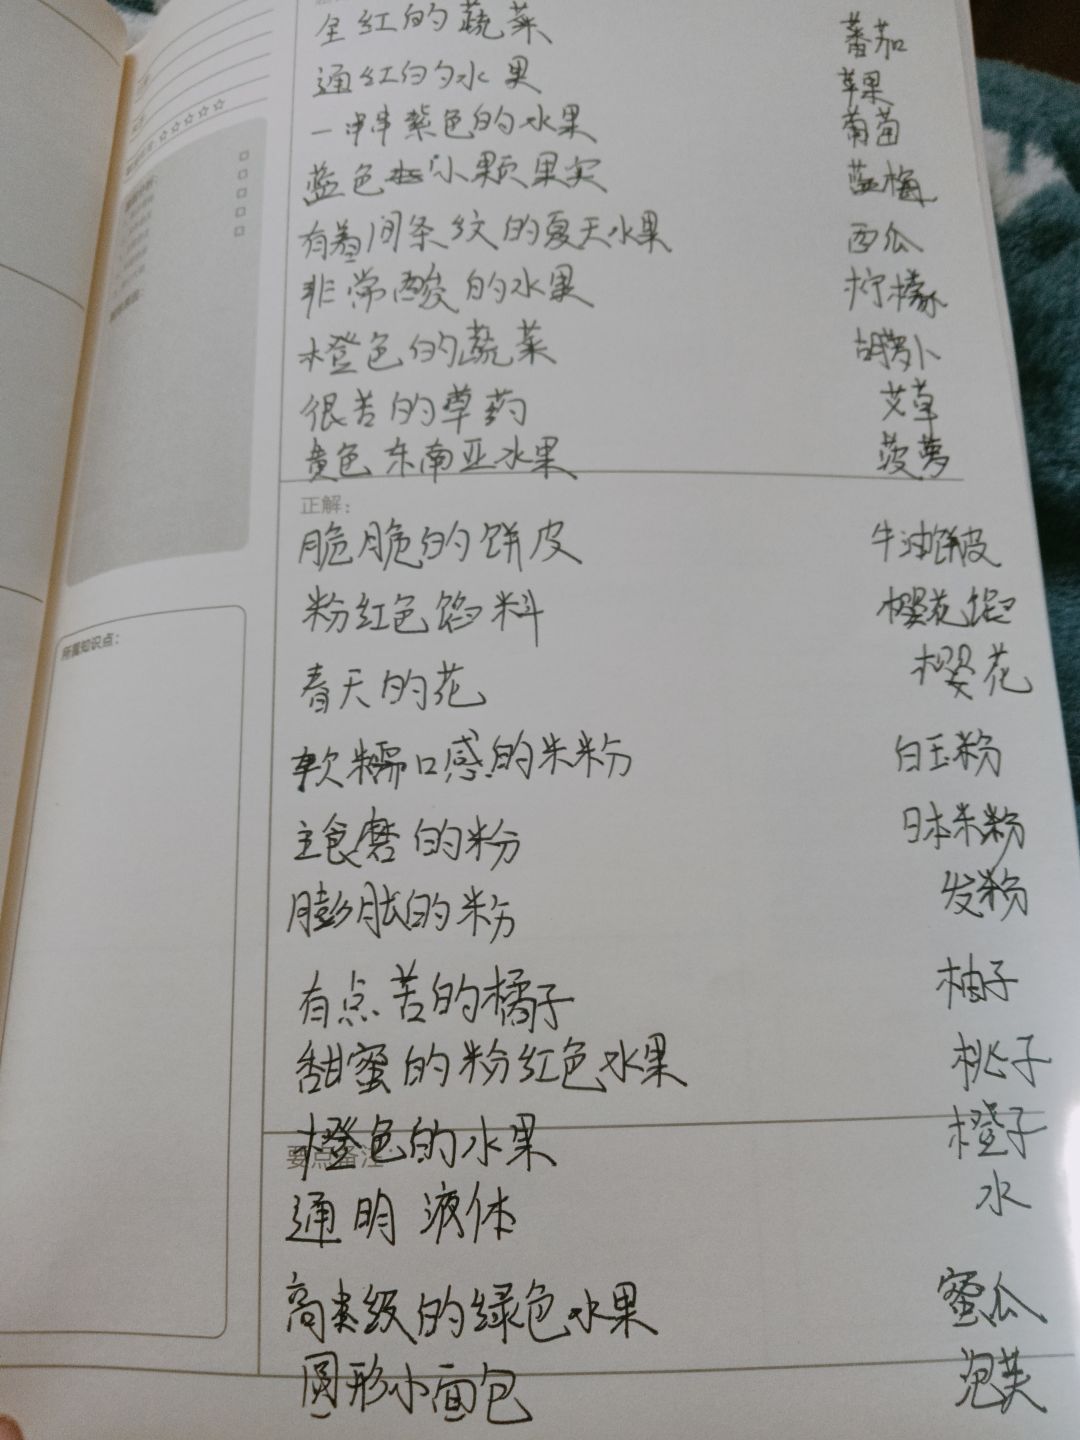 全红的蔬菜 蕃茄
通红的水果 苹果
一串串紫色的水果 葡萄
蓝色小颗果实 蓝梅
有着间条纹的夏天水果 西瓜
非常酸的水果 柠檬
橙色的蔬菜 胡萝卜
很苦的草药 艾草
黄色东南亚水果 菠萝
正解：
脆脆的饼皮 牛油饼皮
粉红色馅料 樱花馅
所属知识点：
春天的花 樱花
软糯口感的米粉 白玉粉
主食磨的粉 日本米粉
膨胀的粉 发粉
有点苦的橘子 柚子
甜蜜的粉红色水果 桃子
橙色的水果 橙子
要点备注
通明液体 水
高级的绿色水果 蜜瓜
圆形小面包 泡芙